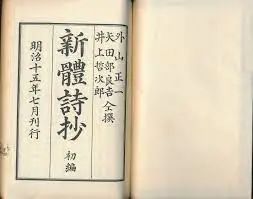 外山正一
矢田部良吉 仝撰
井上哲次郎
新體詩抄 初編
明治十五年七月刊行